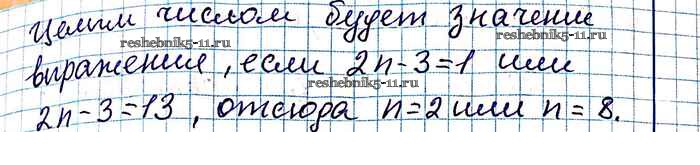 Целым числом будет значение
reshebnik5-11.ru reshebnik5-11.ru
выражения, если 2n-3=1 или
reshebnik5-11.ru reshebnik5-11.ru
2n-3=13, отсюда n=2 или n=8.